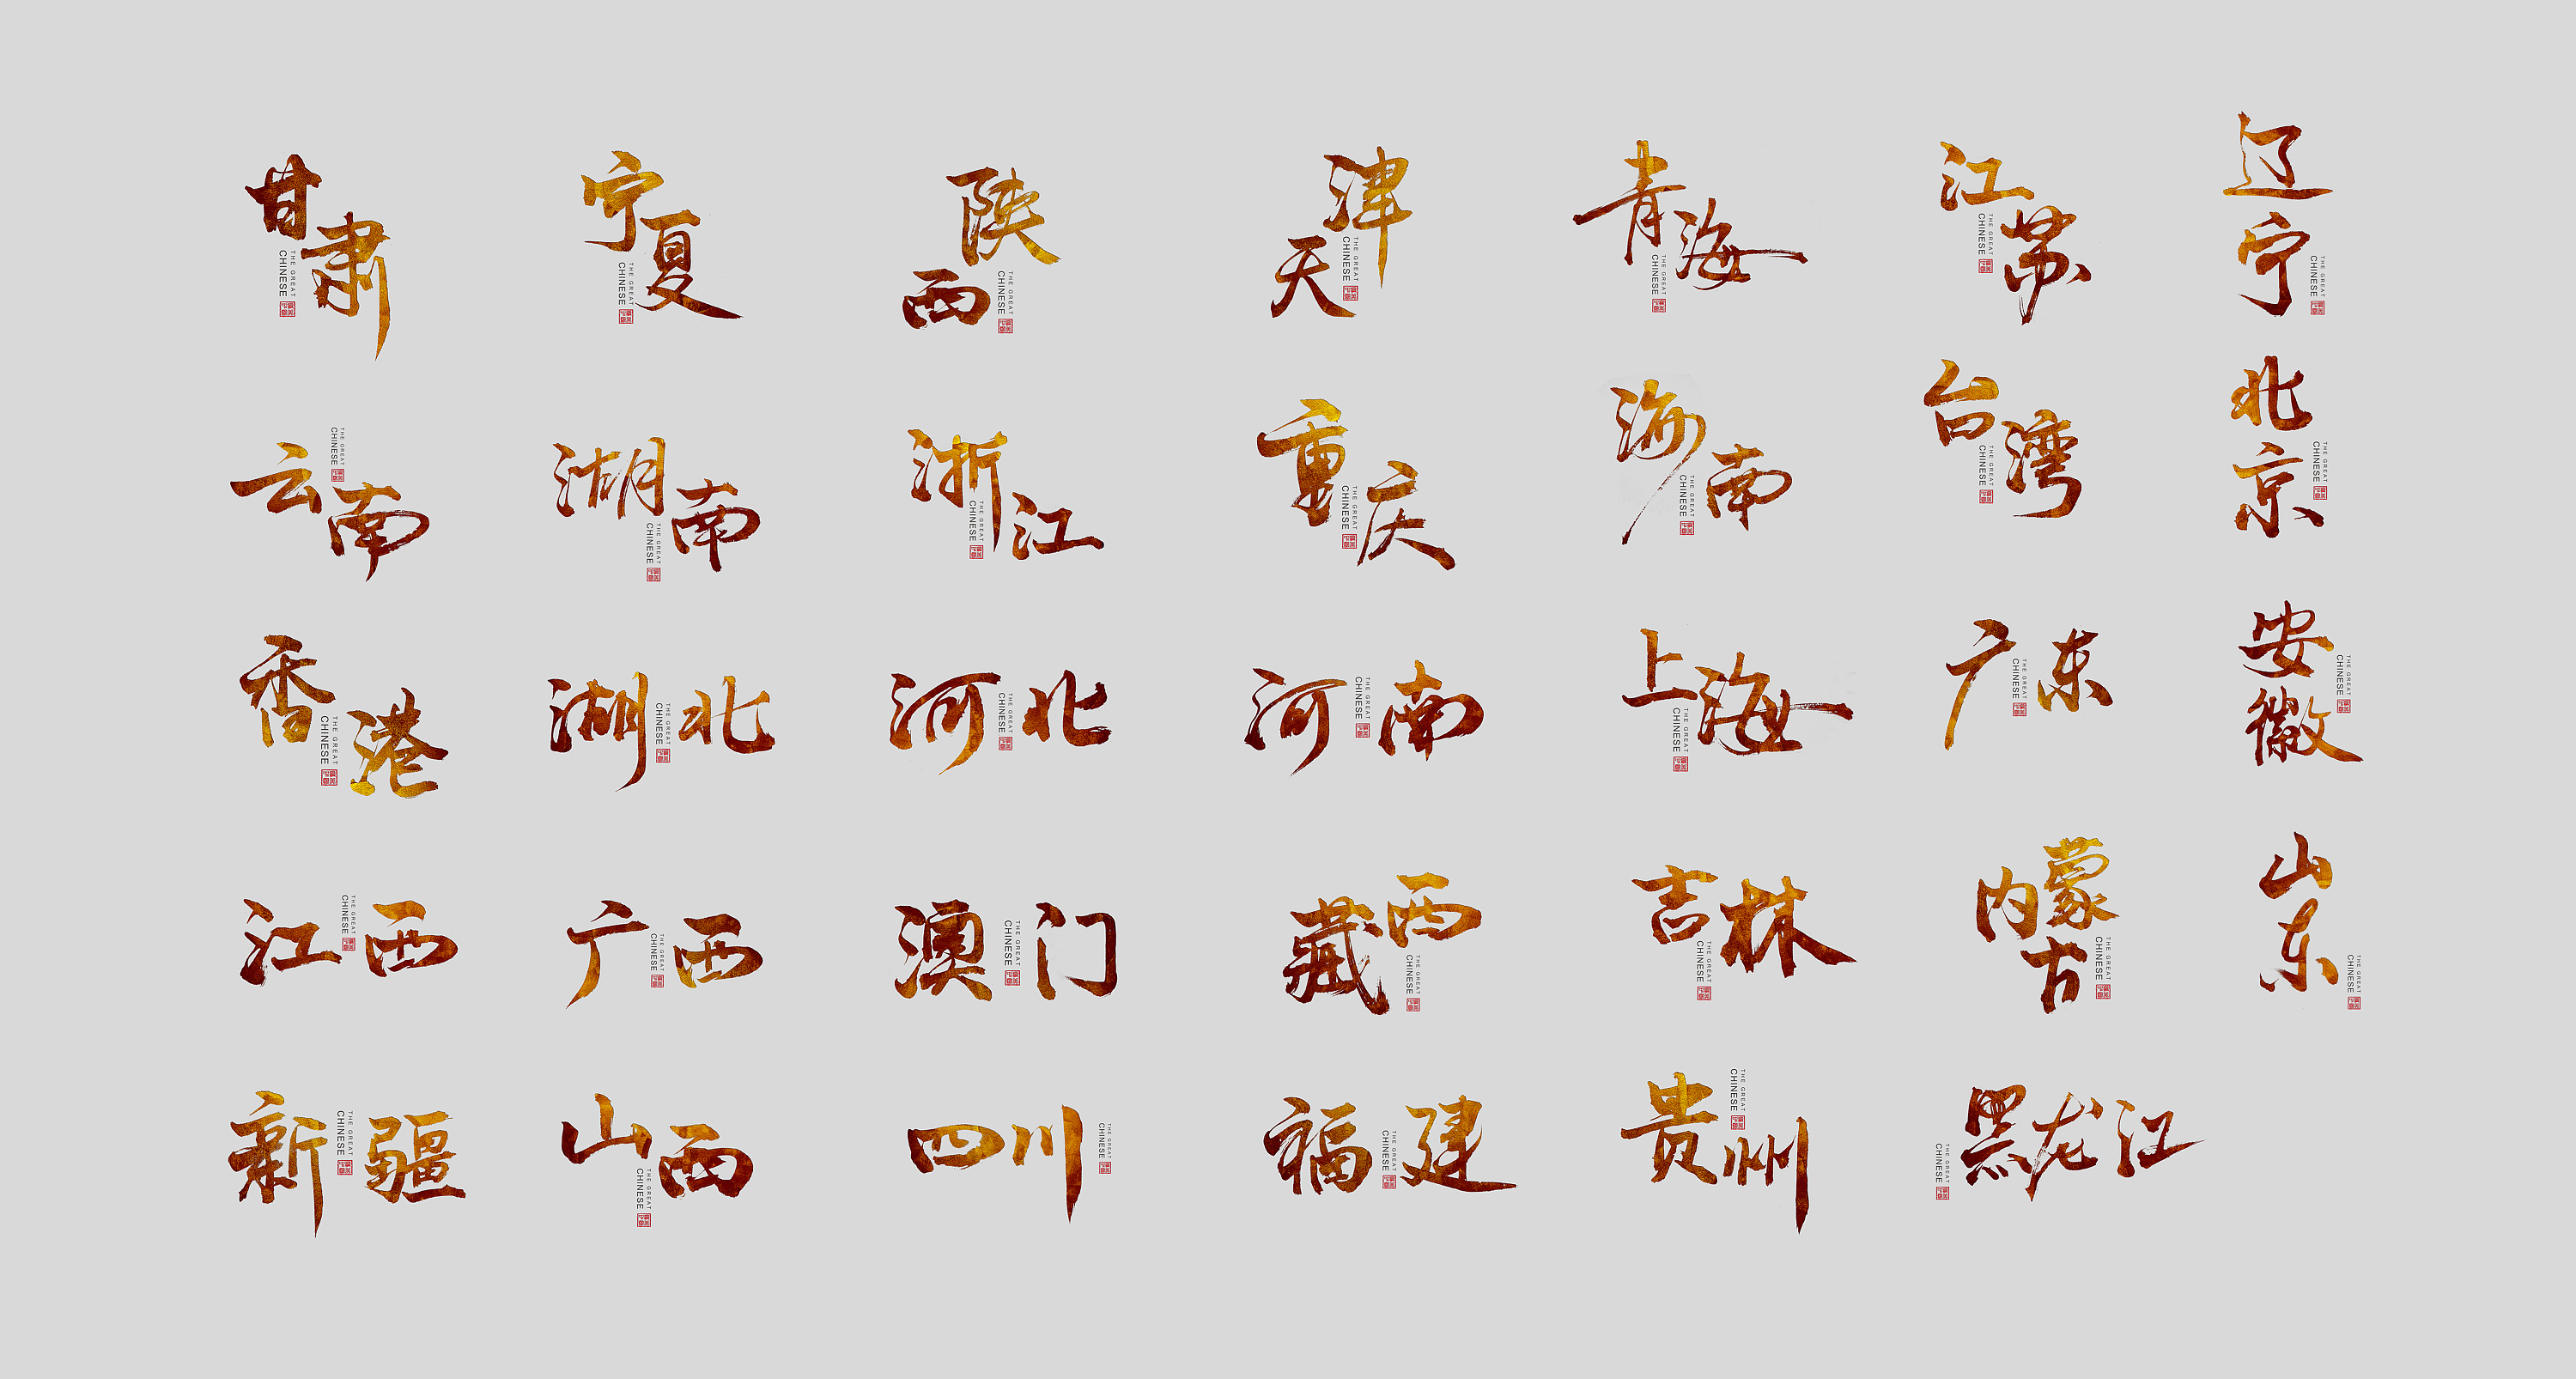 甘肃
THE GREAT
CHINESE
宁夏
THE GREAT
CHINESE
陕西
THE GREAT
CHINESE
天津
THE GREAT
CHINESE
青海
THE GREAT
CHINESE
江苏
THE GREAT
CHINESE
辽宁
THE GREAT
CHINESE
云南
THE GREAT
CHINESE
湖南
THE GREAT
CHINESE
浙江
THE GREAT
CHINESE
重庆
THE GREAT
CHINESE
海南
THE GREAT
CHINESE
台湾
THE GREAT
CHINESE
北京
THE GREAT
CHINESE
香港
THE GREAT
CHINESE
湖北
THE GREAT
CHINESE
河北
THE GREAT
CHINESE
河南
THE GREAT
CHINESE
上海
THE GREAT
CHINESE
广东
THE GREAT
CHINESE
安徽
THE GREAT
CHINESE
江西
THE GREAT
CHINESE
广西
THE GREAT
CHINESE
澳门
THE GREAT
CHINESE
西藏
THE GREAT
CHINESE
吉林
THE GREAT
CHINESE
内蒙古
THE GREAT
CHINESE
山东
THE GREAT
CHINESE
新疆
THE GREAT
CHINESE
山西
THE GREAT
CHINESE
四川
THE GREAT
CHINESE
福建
THE GREAT
CHINESE
贵州
THE GREAT
CHINESE
黑龙江
THE GREAT
CHINESE